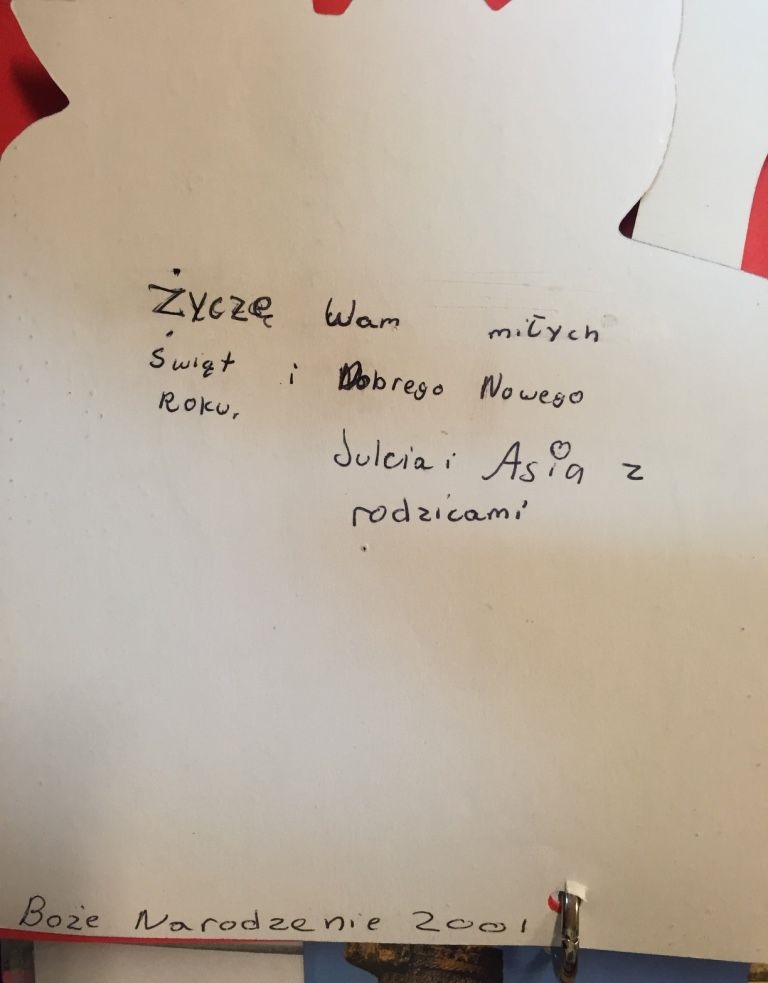 Życzę Wam miłych
Świąt i Dobrego Nowego
Roku,
Julcia i Asia z
rodzicami
Boże Narodzenie 2001